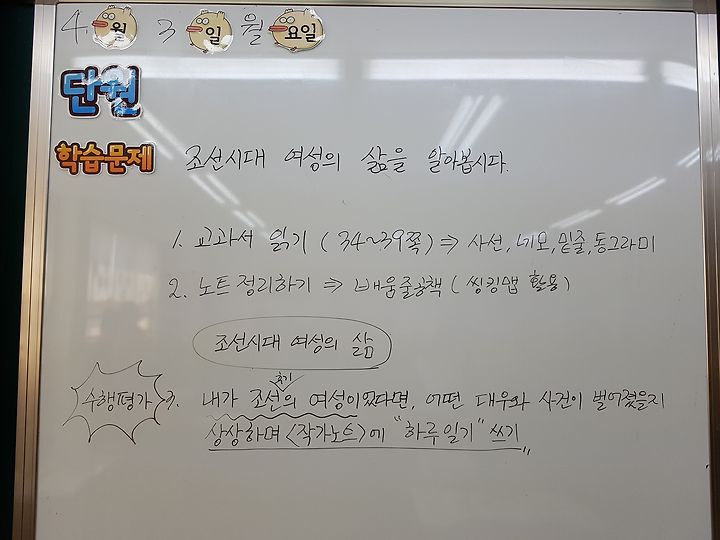 4월 3일 월요일
단원
학습문제 조선시대 여성의 삶을 알아봅시다.
1. 교과서 읽기 (34~39쪽) ⇒ 사선, 네모, 밑줄, 동그라미
2. 노트정리하기 ⇒ 배움줄공책 (씽킹맵 활용)
조선시대 여성의 삶
후기
수행평가 3. 내가 조선의 여성이었다면, 어떤 대우와 사건이 벌어졌을지
상상하며 <작가노트>에 "하루일기" 쓰기"